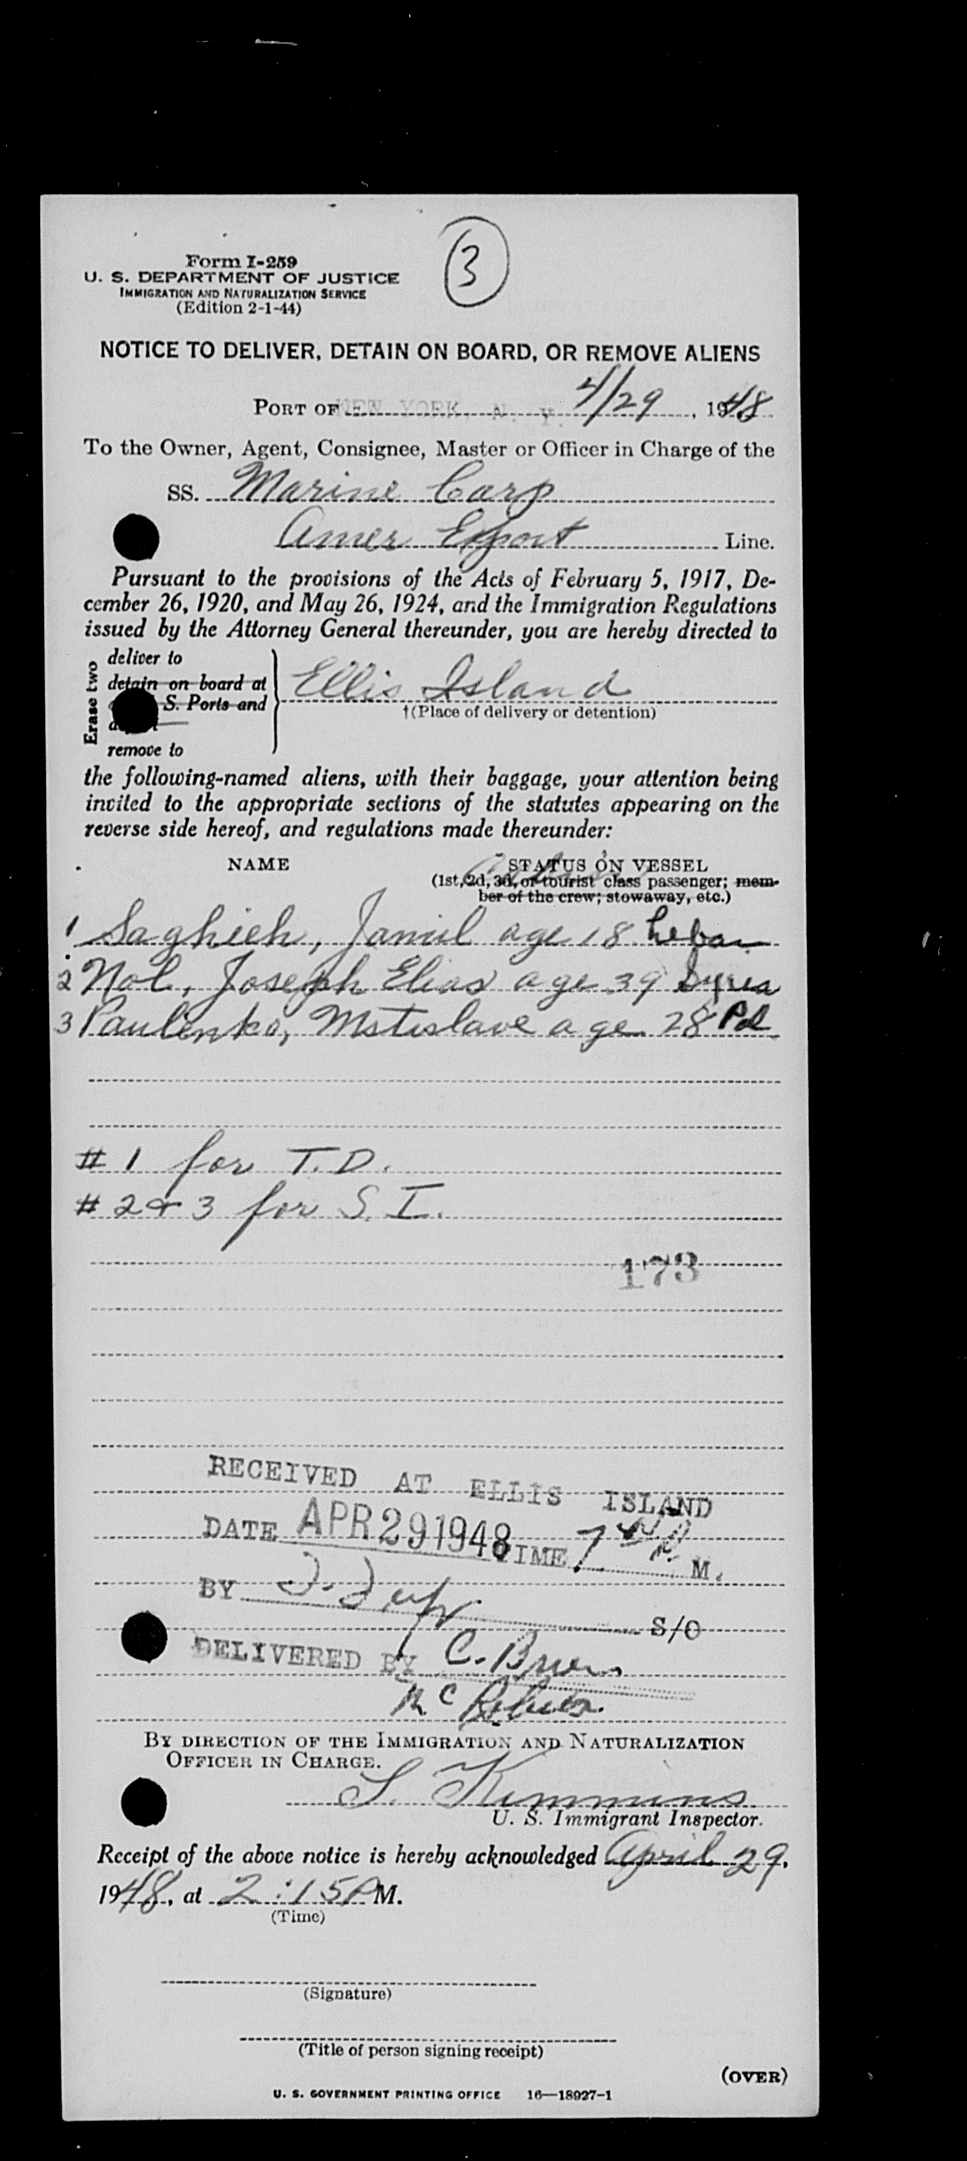 3
Form I-259
U. S. DEPARTMENT OF JUSTICE
IMMIGRATION AND NATURALIZATION SERVICE
(Edition 2-1-44)
NOTICE TO DELIVER, DETAIN ON BOARD, OR REMOVE ALIENS
PORT OF NEW YORK, N. Y. 4/29, 1948
To the Owner, Agent, Consignee, Master or Officer in Charge of the
SS. Marine Carp
Amer Export Line.
Pursuant to the provisions of the Acts of February 5, 1917, De-
cember 26, 1920, and May 26, 1924, and the Immigration Regulations
issued by the Attorney General thereunder, you are hereby directed to
Erase two
deliver to
detain on board at
S. Ports and
remove to
Ellis Island
†(Place of delivery or detention)
the following-named aliens, with their baggage, your attention being
invited to the appropriate sections of the statutes appearing on the
reverse side hereof, and regulations made thereunder:
NAME STATUS ON VESSEL
(1st, 2d, 3d, or tourist class passenger; mem-
ber of the crew; stowaway, etc.)
1 Saghieh, Jamil age 18 Leban
2 Nol, Joseph Elias age 39 Syria
3 Paulenko, Mstislave age 28 Pol
# 1 for T.D.
# 2 & 3 for S.I.
173
RECEIVED AT ELLIS ISLAND
DATE APR 29 1948 TIME 7 M.
BY S/O
DELIVERED BY C.
BY DIRECTION OF THE IMMIGRATION AND NATURALIZATION
OFFICER IN CHARGE.
S. Kimmins
U. S. Immigrant Inspector.
Receipt of the above notice is hereby acknowledged April 29,
1948, at 2:15 P M.
(Time)
(Signature)
(Title of person signing receipt)
(OVER)
U. S. GOVERNMENT PRINTING OFFICE 16—18927-1